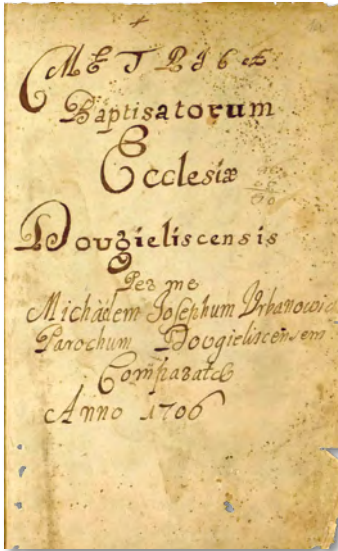 METRICÆ
Baptisatorum
Ecclesiæ
Dovgieliscensis
Per me
Michaelem Josephum Vrbanowic
Parochum Dovgieliscensem
Comparatæ
Anno 1706